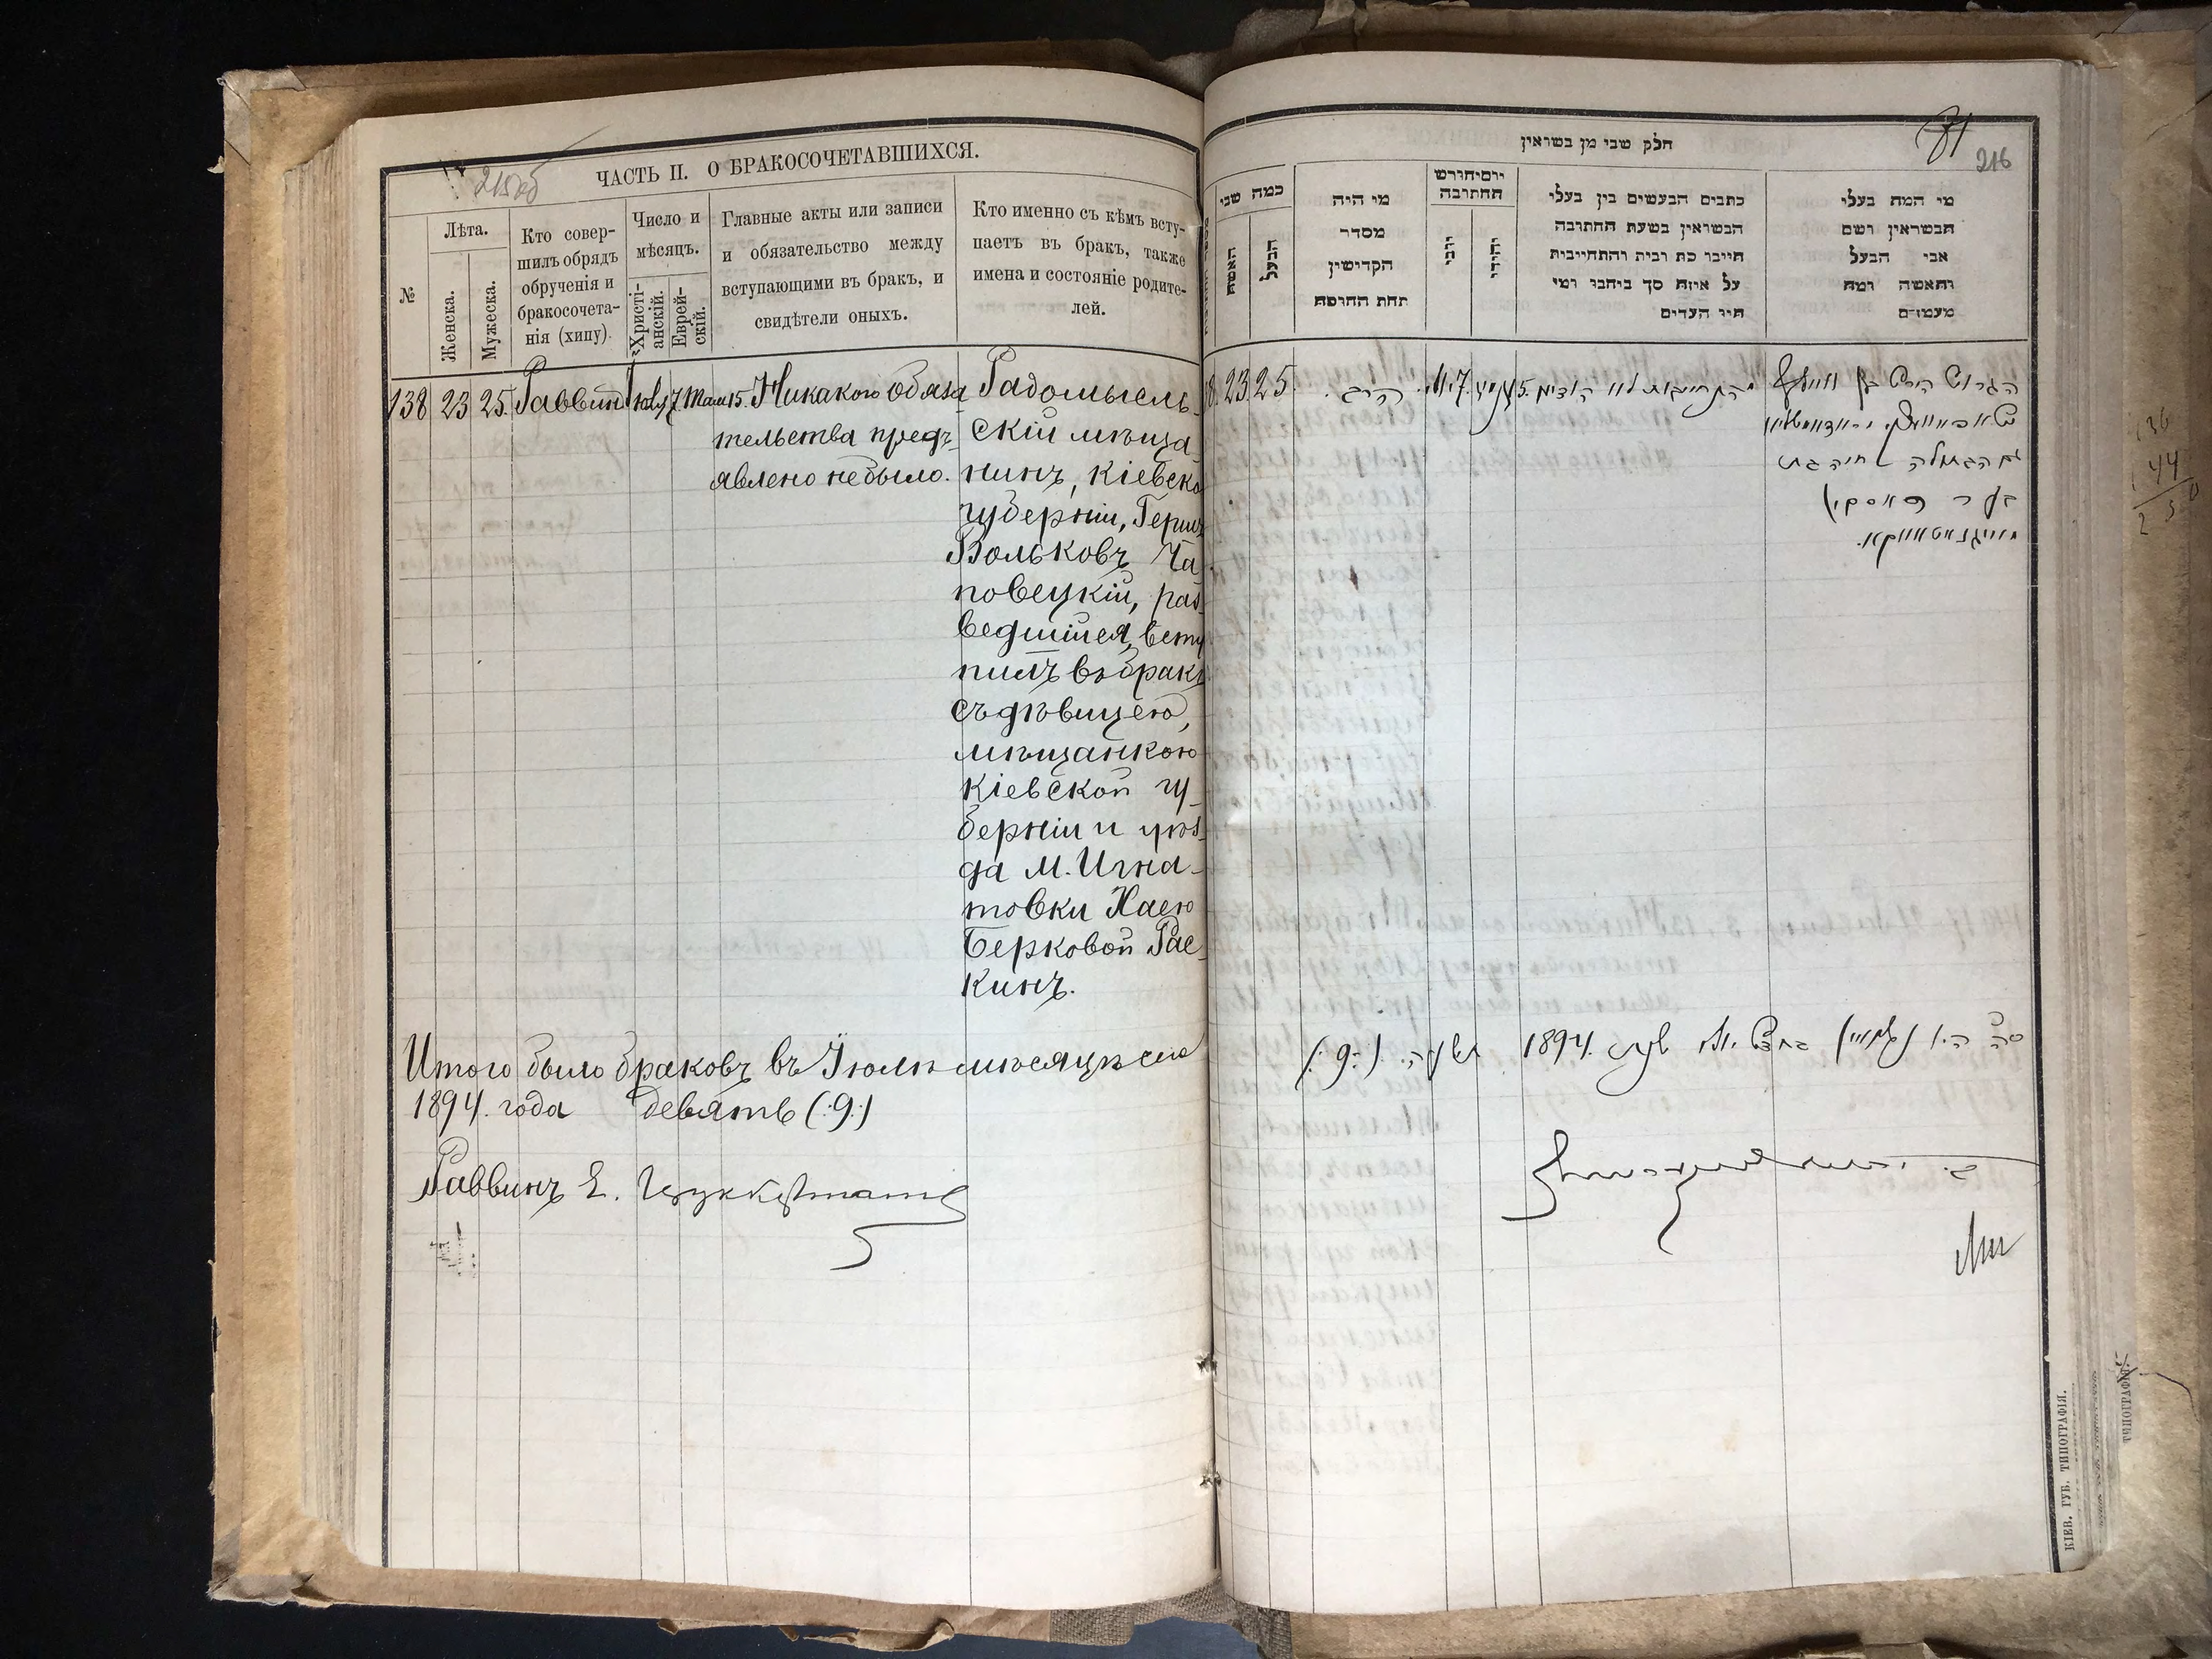 215об
ЧАСТЬ II. О БРАКОСОЧЕТАВШИХСЯ.
№
Лѣта.
Женска.
Мужеска.
Кто совер-
шилъ обрядъ
обрученія и
бракосочета-
нія (хипу).
Число и
мѣсяцъ.
Христі-
анскій.
Еврей-
скій.
Главные акты или записи
и обязательство между
вступающими въ бракъ, и
свидѣтели оныхъ.
Кто именно съ кѣмъ всту-
паетъ въ бракъ, также
имена и состояніе родите-
лей.
138 23 25. Раввинъ 7 15. Никакого обяза
тельства предъ
явлено не было.
Радомысль-
скій мѣща
нинъ, Кіевско
губерніи, Герш
Вольковъ Ча
повецкій, раз
ведшійся, всту
пилъ въ бракъ
съ дѣвицею,
мѣщанкою
Кіевской гу-
берніи и уѣз
да м. Игна-
товки Хаею
Берковой Рас-
кинъ.
Итого было браковъ въ Іюлѣ мѣсяцѣ сего
1894. года девять (:9:)
Раввинъ Е. Цуккерманъ
81
216
חלק שבי מן בשוראין
כמה שבי
האשה
הבעל
מי היה
מסדר
הקדישין
תחת החופה
יום וחודש
החתובה
יוני
יהודי
כתבים הבעשים בין בעלי
הבשוראין בשעת החתובה
חייבו כת רבית והתחייבית
על איזה סך ביחבו ומי
היו העדים
מי המה בעלי
הבשוראין ושם
אבי הבעל
והאשה ומה
מעמדם
138. 23 25. הרב. 7. 15.
הגרוש הירש בן וועלף
טשאפאוועצקי
עם הבתולה חיה בת
בער ראסקין
(:9:) 1894.
КІЕВ. ГУБ. ТИПОГРАФІЯ.
ТИПОГРАФІЯ.